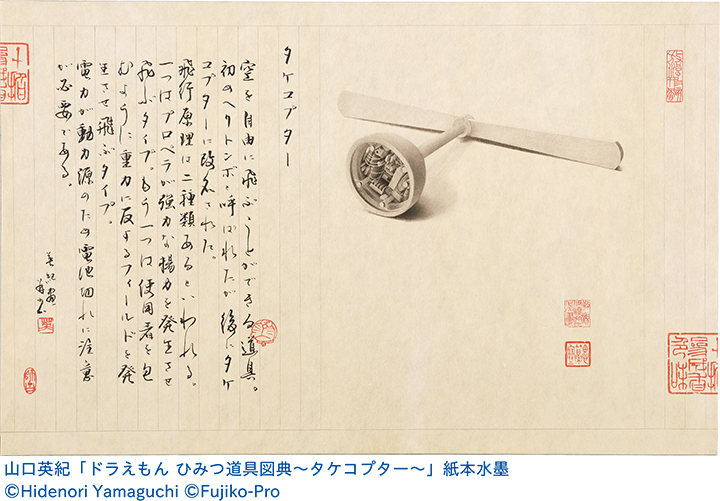 タケコプター
空を自由に飛ぶことができる道具。
初めヘリトンボと呼ばれたが後にタケ
コプターに改名された。
飛行原理は二種類あるといわれる。
一つはプロペラが強力な揚力を発生させ
飛ぶタイプ。もう一つは使用者を包
むように重力に反するフィールドを発
生させ飛ぶタイプ。
電力が動力源のため電池切れに注意
が必要である。
英紀画
山口英紀「ドラえもん ひみつ道具図典〜タケコプター〜」紙本水墨
©Hidenori Yamaguchi ©Fujiko-Pro